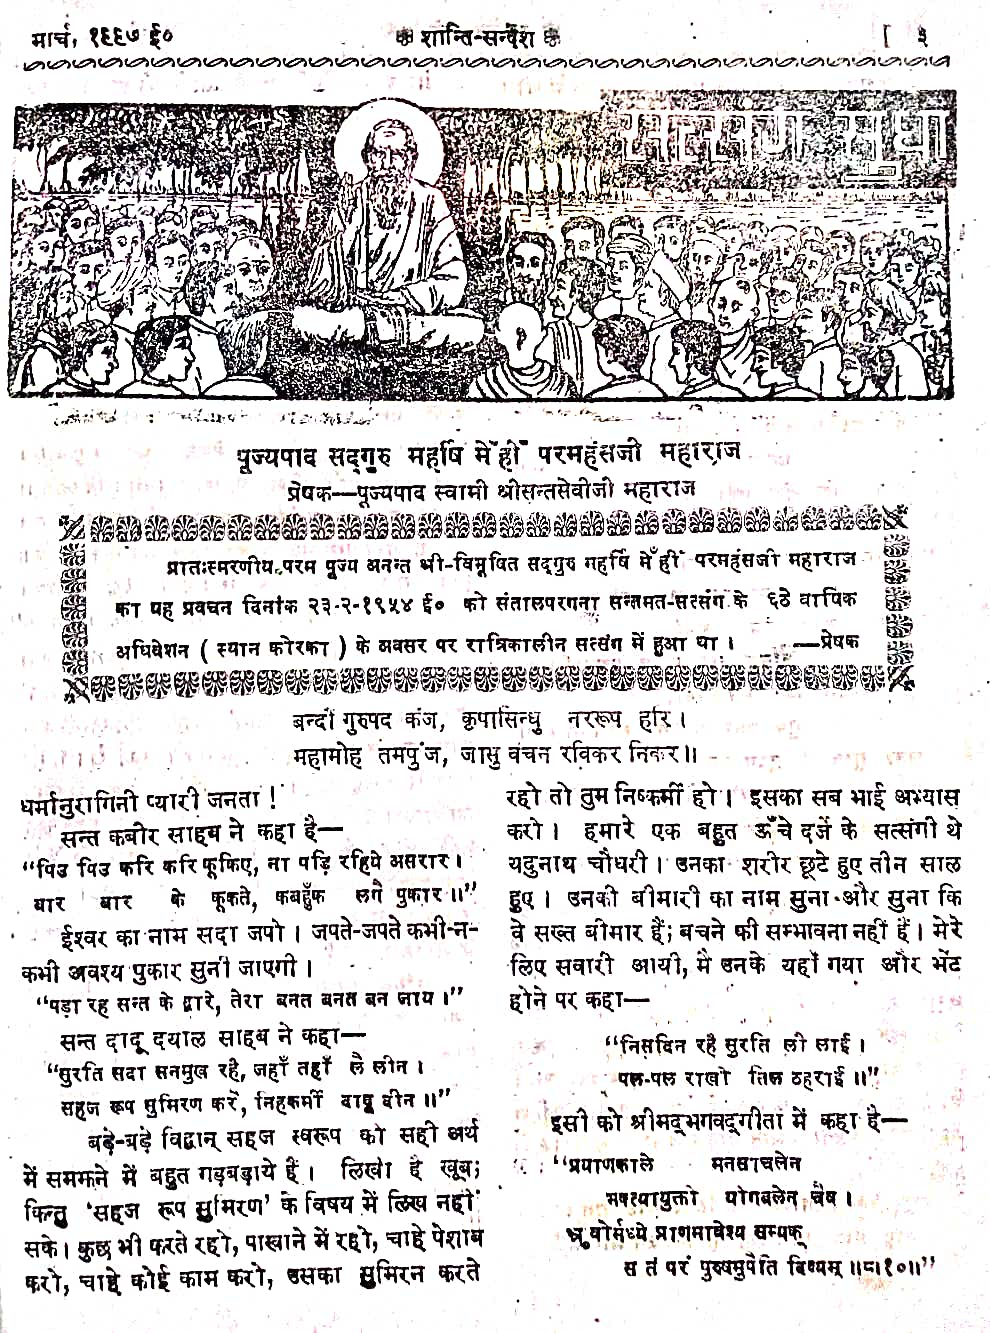 मार्च, १९९७ ई०
शान्ति-सन्देश
[ ३
सत्संग सुधा
पूज्यपाद सद्‌गुरु महर्षि मेँहीँ परमहंसजी महाराज
प्रेषक—पूज्यपाद स्वामी श्रीसन्तसेवीजी महाराज
प्रातःस्मरणीय परम पूज्य अनन्त श्री-विभूषित सद्‌गुरु महर्षि मेँहीँ परमहंसजी महाराज
का यह प्रवचन दिनांक २३-२-१९५४ ई० को संतालपरगना सन्तमत-सत्संग के ६ठे वार्षिक
अधिवेशन ( स्थान कोरका ) के अवसर पर रात्रिकालीन सत्संग में हुआ था । —प्रेषक
बन्दौं गुरुपद कंज, कृपासिन्धु नररूप हरि ।
महामोह तमपुंज, जासु वचन रविकर निकर ॥
धर्मानुरागिनी प्यारी जनता !
सन्त कबीर साहब ने कहा है—
“पिउ पिउ करि करि कूकिए, ना पड़ि रहिये असरार ।
बार बार के कूकते, कबहुँक लगै पुकार ॥”
ईश्वर का नाम सदा जपो । जपते-जपते कभी-न-
कभी अवश्य पुकार सुनी जाएगी ।
“पड़ा रह सन्त के द्वारे, तेरा बनत बनत बन जाय ।”
सन्त दादू दयाल साहब ने कहा—
“सुरति सदा सनमुख रहै, जहाँ तहाँ लै लीन ।
सहज रूप सुमिरण करै, निहकर्मी दादू दीन ॥”
बड़े-बड़े विद्वान् सहज स्वरूप को सही अर्थ
में समझने में बहुत गड़बड़ाये हैं । लिखा है खूब;
किन्तु ‘सहज रूप सुमिरण’ के विषय में लिख नहीं
सके । कुछ भी करते रहो, पाखाने में रहो, चाहे पेशाब
करो, चाहे कोई काम करो, उसका सुमिरन करते
रहो तो तुम निष्कर्मी हो । इसका सब भाई अभ्यास
करो । हमारे एक बहुत ऊँचे दर्जे के सत्संगी थे
यदुनाथ चौधरी । उनका शरीर छूटे हुए तीन साल
हुए । उनकी बीमारी का नाम सुना और सुना कि
वे सख्त बीमार हैं; बचने की सम्भावना नहीं है । मेरे
लिए सवारी आयी, मैं उनके यहाँ गया और भेंट
होने पर कहा—
“निसदिन रहै सुरति लौ लाई ।
पल-पल राखो तिल ठहराई ॥”
इसी को श्रीमद्‌भगवद्‌गीता में कहा है—
“प्रयाणकाले मनसाचलेन
भक्त्यायुक्तो योगबलेन चैव ।
भ्रुवोर्मध्ये प्राणमावेश्य सम्यक्
स तं परं पुरुषमुपैति दिव्यम् ॥८।१०॥”